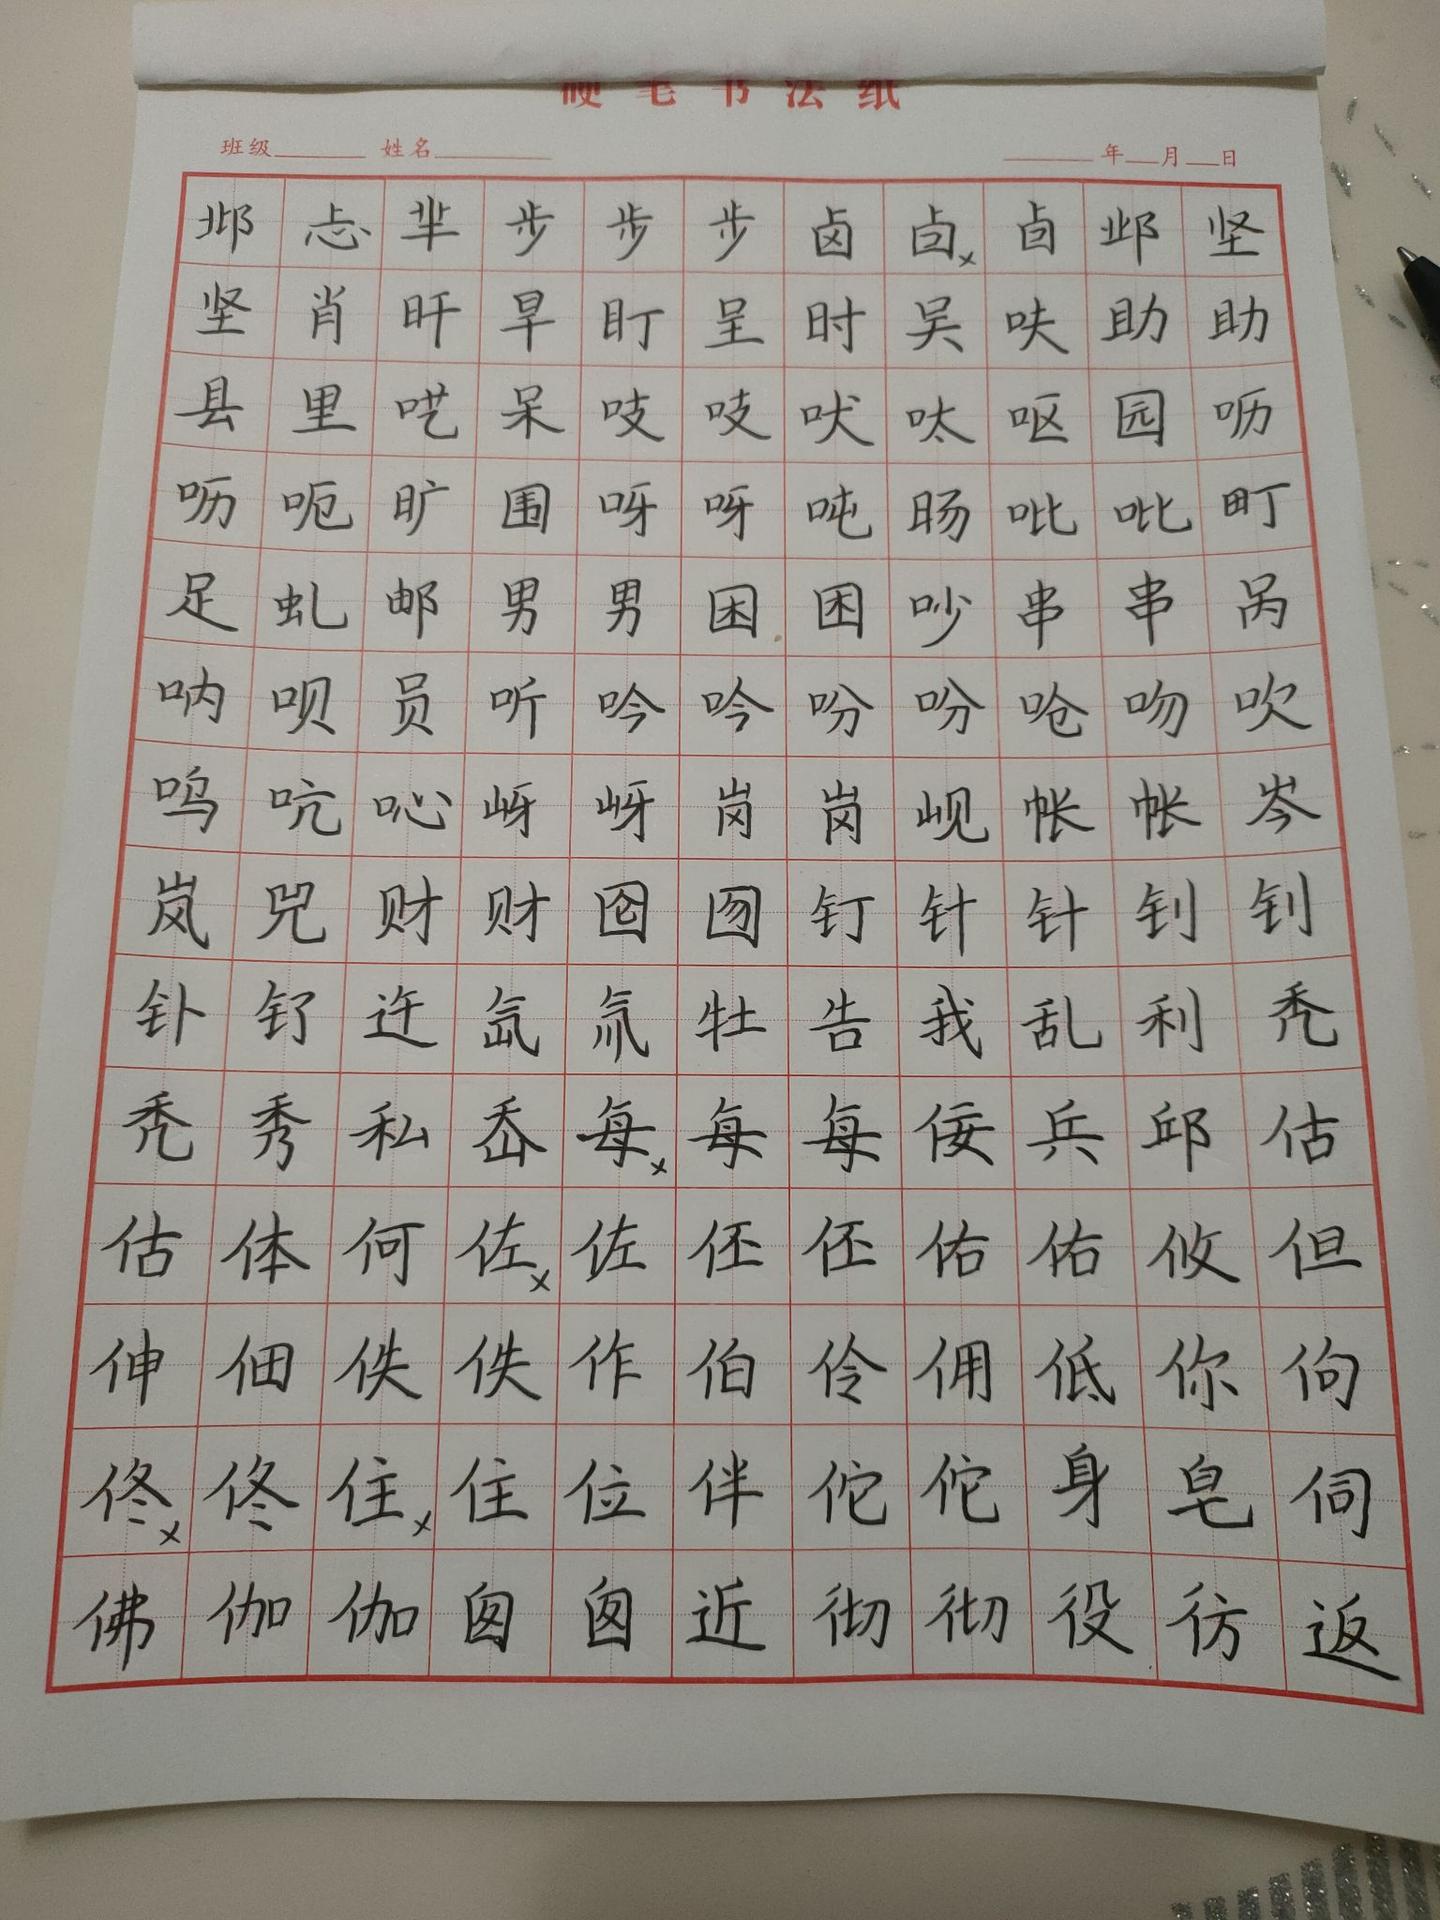 硬笔书法纸
班级 姓名 年 月 日
邶 忐 芈 步 步 步 卤 卣 卣 邺 坚
坚 肖 旰 旱 盯 呈 时 吴 呋 助 助
县 里 呓 呆 吱 吱 吠 呔 呕 园 呖
呖 呃 旷 围 呀 呀 吨 旸 吡 吡 町
足 虬 邮 男 男 困 困 吵 串 串 呙
呐 呗 员 听 吟 吟 吩 吩 呛 吻 吹
呜 吭 吣 岈 岈 岗 岗 岘 帐 帐 岑
岚 兕 财 财 囵 囫 钉 针 针 钊 钊
钋 钌 迕 氙 氚 牡 告 我 乱 利 秃
秃 秀 私 岙 每 每 每 佞 兵 邱 估
估 体 何 佐 佐 伾 伾 佑 佑 攸 但
伸 佃 佚 佚 作 伯 伶 佣 低 你 佝
佟 佟 住 住 位 伴 佗 佗 身 皂 伺
佛 伽 伽 囱 囱 近 彻 彻 役 彷 返